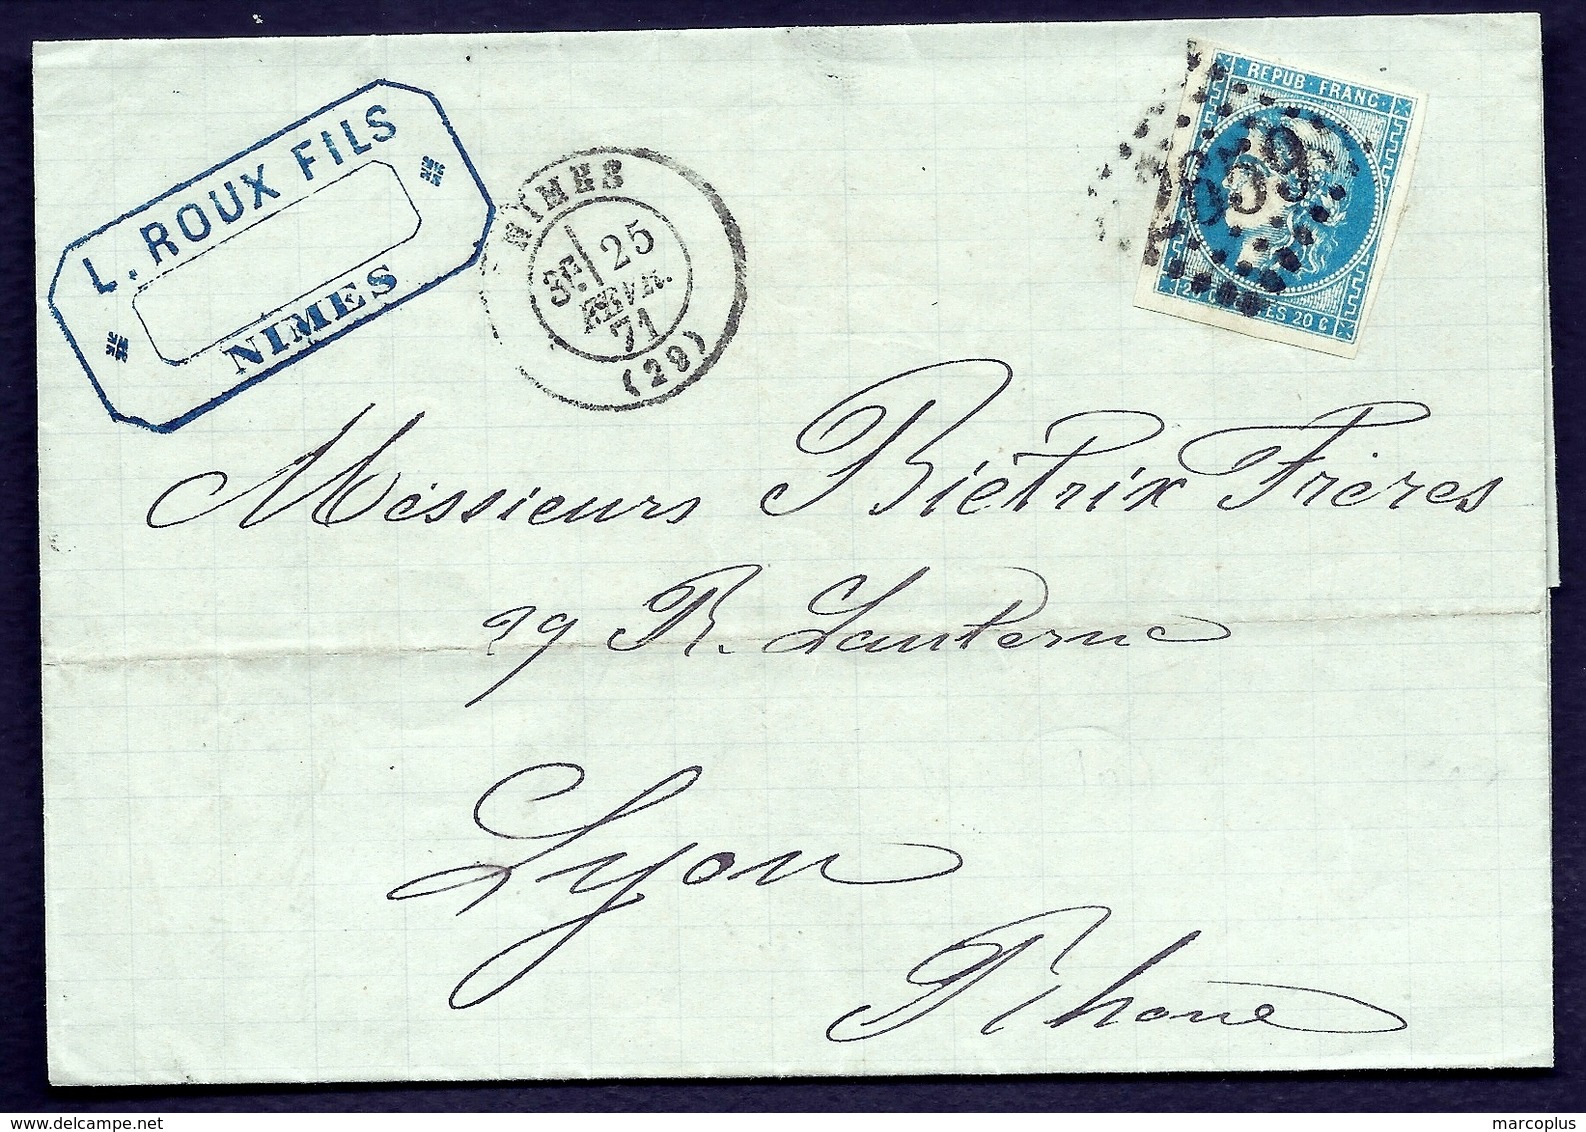 L. ROUX FILS
NIMES
NIMES
3E 25
FEVR.
71
(29)
REPUB. FRANC.
2659
20 C ES 20 C
Messieurs Biétrix Frères
29 R. Lanterne
Lyon
Rhône
www.delcampe.net
marcoplus